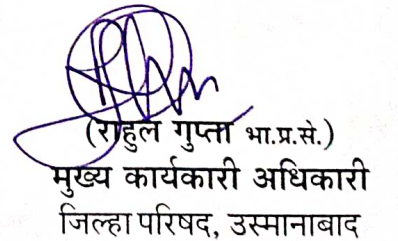 (राहुल गुप्ता भा.प्र.से.)
मुख्य कार्यकारी अधिकारी
जिल्हा परिषद, उस्मानाबाद